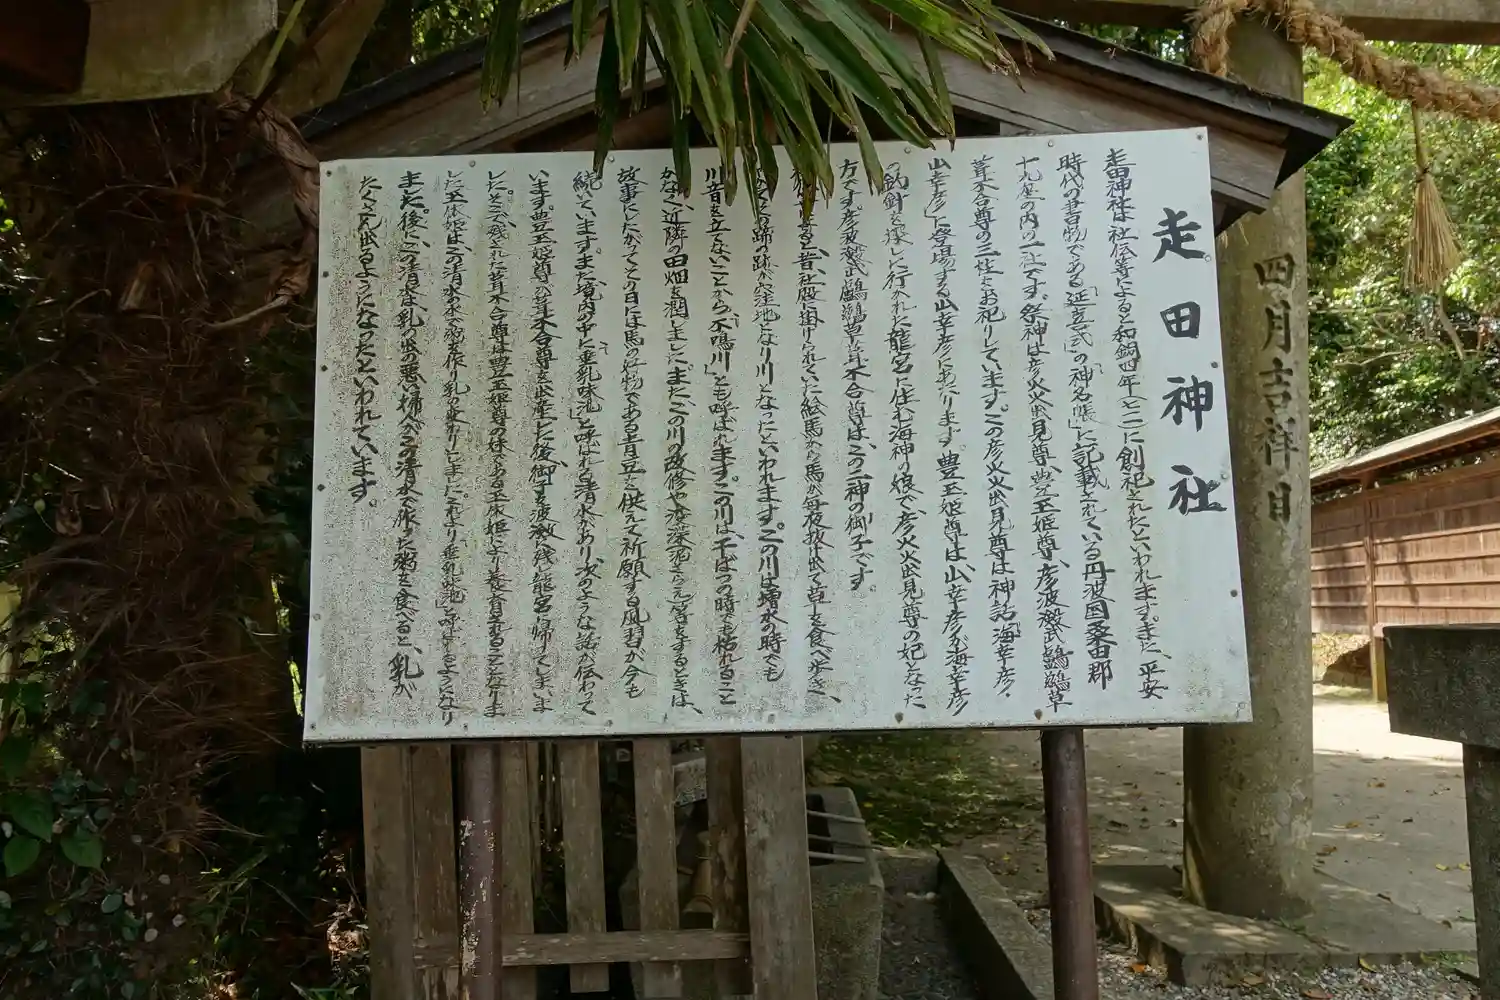 走田神社
走田神社は社伝等によると和銅四年(七一一)に創祀されたといわれます。また、平安
時代の書物である「延喜式」の「神名帳」に記載されている丹波国桑田郡
十九座の内の一社です。祭神は彦火火出見尊、豊玉姫尊、彦波瀲武鸕鶿草
葺不合尊の三柱をお祀りしています。この彦火火出見尊は神話「海幸彦・
山幸彦」に登場する山幸彦にあたります。豊玉姫尊は、山幸彦が海幸彦
の釣針を探しに行かれた龍宮に住む海神の娘で、彦火火出見尊の妃となった
方です。彦波瀲武鸕鶿草葺不合尊は、この二神の御子です。
昔、社殿に掛けられていた絵馬から馬が毎夜抜け出て草を食べ歩き、
の蹄の跡が窪地になり川となったといわれます。この川は増水の時でも
川音を立てないことから、「不鳴川」とも呼ばれます。この川は、干ばつの時でも枯れること
がなく近隣の田畑を潤しました。またこの川の改修や溝深泥さらえ等をするときは、
故事にしたがってとり日には馬の好物である青豆を供えて祈願する風習が今も
続いています。また境内の中に「垂乳味池」と呼ばれる清水があり、次のような話が伝わって
います。豊玉姫尊が葺不合尊を出産した後、御子を波激に残し龍宮に帰ってしまいま
した。そこで残された葺不合尊は豊玉姫尊の妹である玉依姫により養育されることになりま
した。玉依姫はこの清水の水で飴を作り乳の変わりとしました。これより「垂乳味池」と呼ばれるようになり
ました。後に、この清水は、乳の出の悪い婦人がこの清水で作った粥を食べると、乳が
たくさん出るようになったといわれています。
四月吉祥日